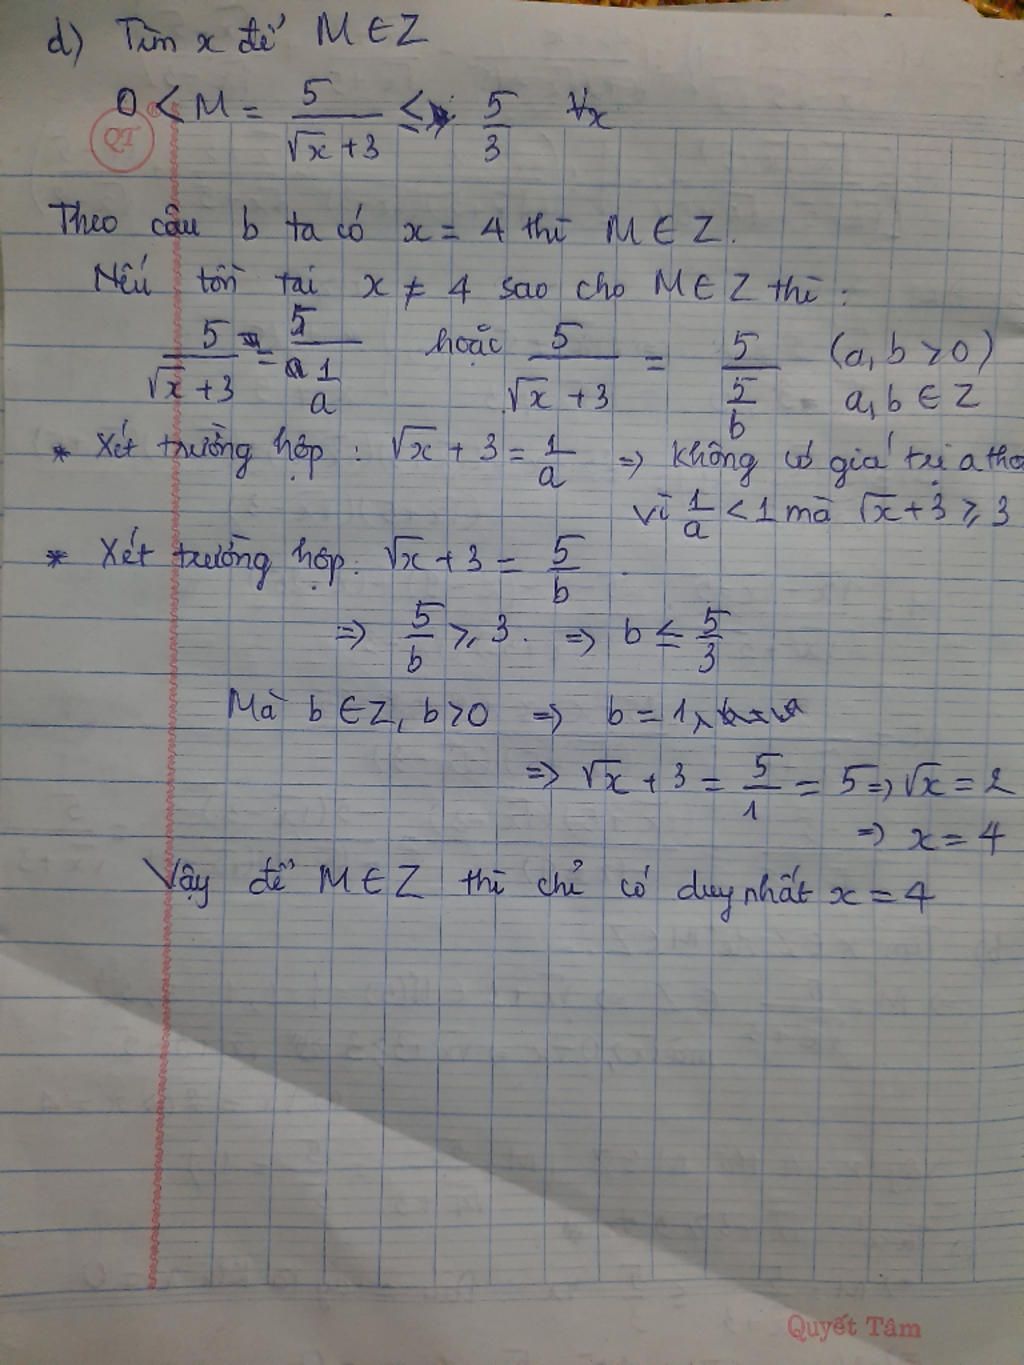 d) Tìm x để M ∈ Z
0 < M = 5/(√x + 3) ≤ 5/3 ∀x
QT
Theo câu b ta có x = 4 thì M ∈ Z.
Nếu tồn tại x ≠ 4 sao cho M ∈ Z thì:
5/(√x + 3) = 5/(1/a) hoặc 5/(√x + 3) = 5/(5/b) (a, b > 0)
a, b ∈ Z
* Xét trường hợp: √x + 3 = 1/a ⇒ không có giá trị a tho
vì 1/a < 1 mà √x + 3 ⩾ 3
* Xét trường hợp: √x + 3 = 5/b.
⇒ 5/b ⩾ 3. ⇒ b ≤ 5/3
Mà b ∈ Z, b > 0 ⇒ b = 1
⇒ √x + 3 = 5/1 = 5 ⇒ √x = 2
⇒ x = 4
Vậy để M ∈ Z thì chỉ có duy nhất x = 4
Quyết Tâm